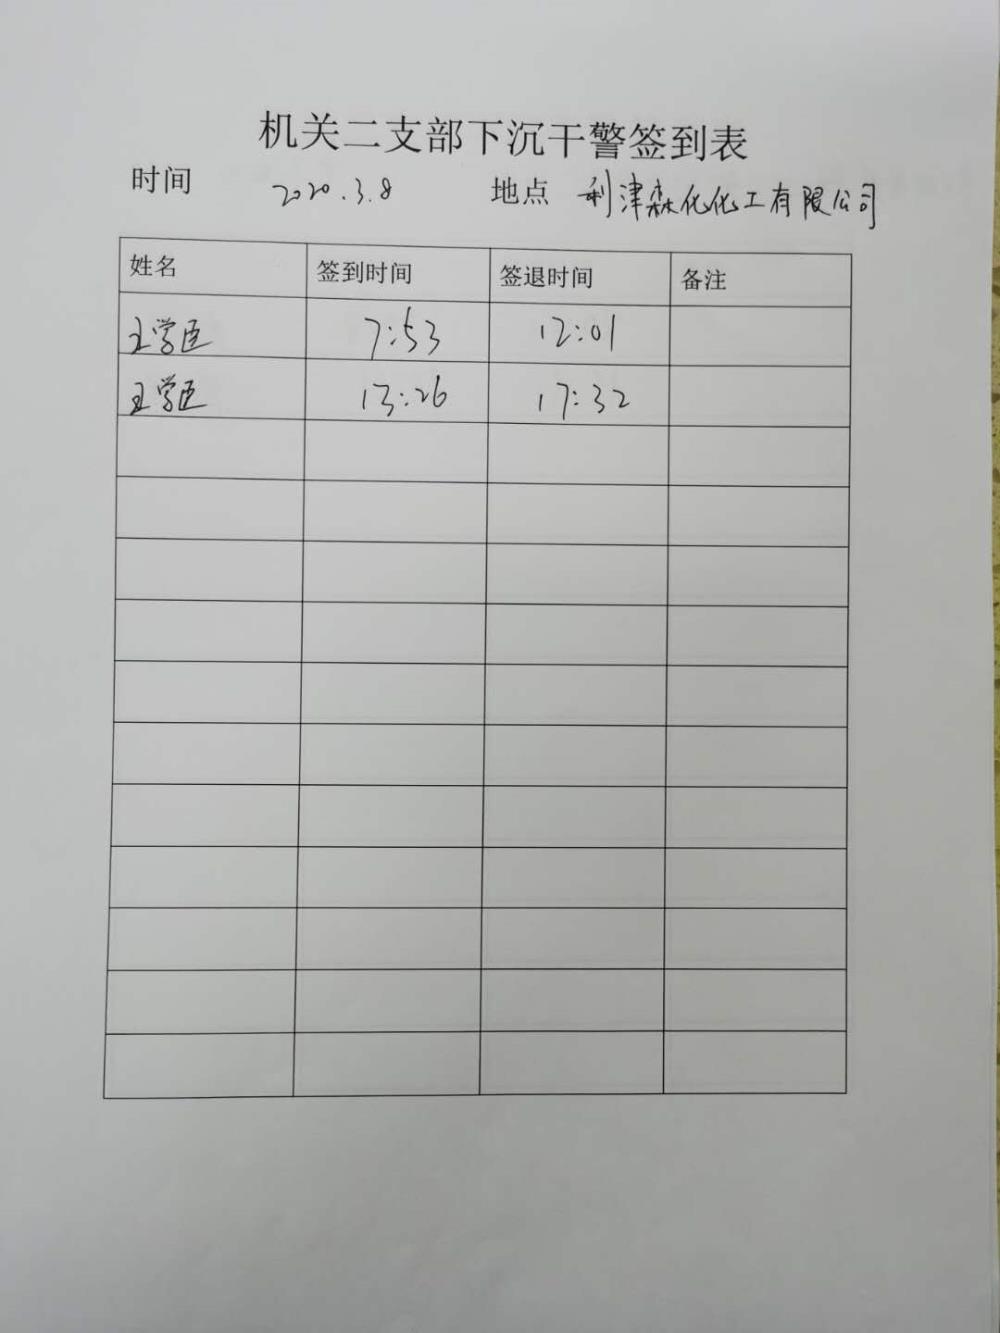 机关二支部下沉干警签到表
时间 2020.3.8 地点 利津森化化工有限公司
姓名 签到时间 签退时间 备注
王学臣 7:53 12:01
王学臣 13:26 17:32